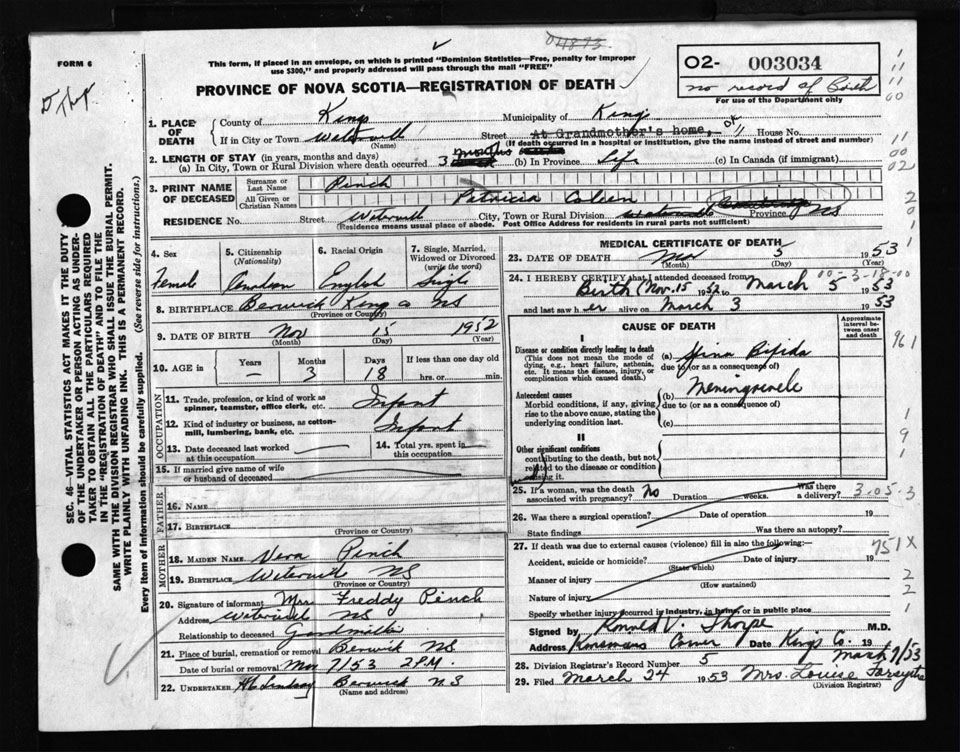 01873
FORM 6
This form, if placed in an envelope, on which is printed "Dominion Statistics—Free, penalty for improper
use $300," and properly addressed will pass through the mail "FREE"
PROVINCE OF NOVA SCOTIA—REGISTRATION OF DEATH
O2- 003034
no record of Birth
For use of the Department only
1. PLACE OF DEATH
County of Kings Municipality of Kings
If in City or Town Waterville Street At Grandmother's home, House No.
(Name) (If death occurred in a hospital or institution, give the name instead of street and number)
2. LENGTH OF STAY (in years, months and days)
(a) In City, Town or Rural Division where death occurred 3 months (b) In Province Life (c) In Canada (if immigrant)
3. PRINT NAME OF DECEASED
Surname or Last Name Pinch
All Given or Christian Names Patricia Coleen
RESIDENCE No. Street Waterville City, Town or Rural Division Province NS
(Residence means usual place of abode. Post Office Address for residents in rural parts not sufficient)
4. Sex Female
5. Citizenship (Nationality) Canadian
6. Racial Origin English
7. Single, Married, Widowed or Divorced (write the word) Single
8. BIRTHPLACE Berwick Kings Co NS
(Province or County)
9. DATE OF BIRTH Nov 15 1952
(Month) (Day) (Year)
10. AGE in Years — Months 3 Days 18 If less than one day old hrs. or min.
OCCUPATION
11. Trade, profession, or kind of work as spinner, teamster, office clerk, etc. Infant
12. Kind of industry or business, as cotton-mill, lumbering, bank, etc. Infant
13. Date deceased last worked at this occupation
14. Total yrs. spent in this occupation
15. If married give name of wife or husband of deceased
FATHER
16. NAME
17. BIRTHPLACE
(Province or Country)
MOTHER
18. MAIDEN NAME Vera Pinch
19. BIRTHPLACE Waterville NS
(Province or Country)
20. Signature of informant Mrs Freddy Pinch
Address Waterville NS
Relationship to deceased Grandmother
21. Place of burial, cremation or removal Berwick NS
Date of burial or removal Mar 7/53 2 P.M.
22. UNDERTAKER Berwick N S
(Name and address)
MEDICAL CERTIFICATE OF DEATH
23. DATE OF DEATH Mar 5 1953
(Month) (Day) (Year)
00-3-18-00
24. I HEREBY CERTIFY that I attended deceased from
Birth (Nov. 15 1952 to March 5 1953
and last saw her alive on March 3 1953
CAUSE OF DEATH
Approximate interval between onset and death
I
Disease or condition directly leading to death
(This does not mean the mode of dying, e.g., heart failure, asthenia, etc. It means the disease, injury, or complication which caused death.)
(a) Spina Bifida
due to (or as a consequence of)
Antecedent causes
Morbid conditions, if any, giving rise to the above cause, stating the underlying condition last.
(b) Meningocele
due to (or as a consequence of)
(c)
II
Other significant conditions
contributing to the death, but not related to the disease or condition causing it.
25. If a woman, was the death associated with pregnancy? No Duration weeks. Was there a delivery? 3.05.3
26. Was there a surgical operation? Date of operation 19
State findings Was there an autopsy?
27. If death was due to external causes (violence) fill in also the following:— 751X
Accident, suicide or homicide? Date of injury 19
(State which)
Manner of injury
(How sustained)
Nature of injury
Specify whether injury occurred in industry, in home, or in public place
Signed by V. Thorpe M.D.
Address Corner Date Kings Co. 19
March 9/53
28. Division Registrar's Record Number 5
29. Filed March 24 1953 Mrs. Louise Forsythe
(Division Registrar)
SEC. 46—VITAL STATISTICS ACT MAKES IT THE DUTY
OF THE UNDERTAKER OR PERSON ACTING AS UNDERTAKER TO OBTAIN ALL THE PARTICULARS REQUIRED
IN THE "REGISTRATION OF DEATH" AND TO FILE THE
SAME WITH THE DIVISION REGISTRAR WHO SHALL ISSUE THE BURIAL PERMIT.
WRITE PLAINLY WITH UNFADING INK. THIS IS A PERMANENT RECORD.
Every item of information should be carefully supplied. (See reverse side for instructions.)